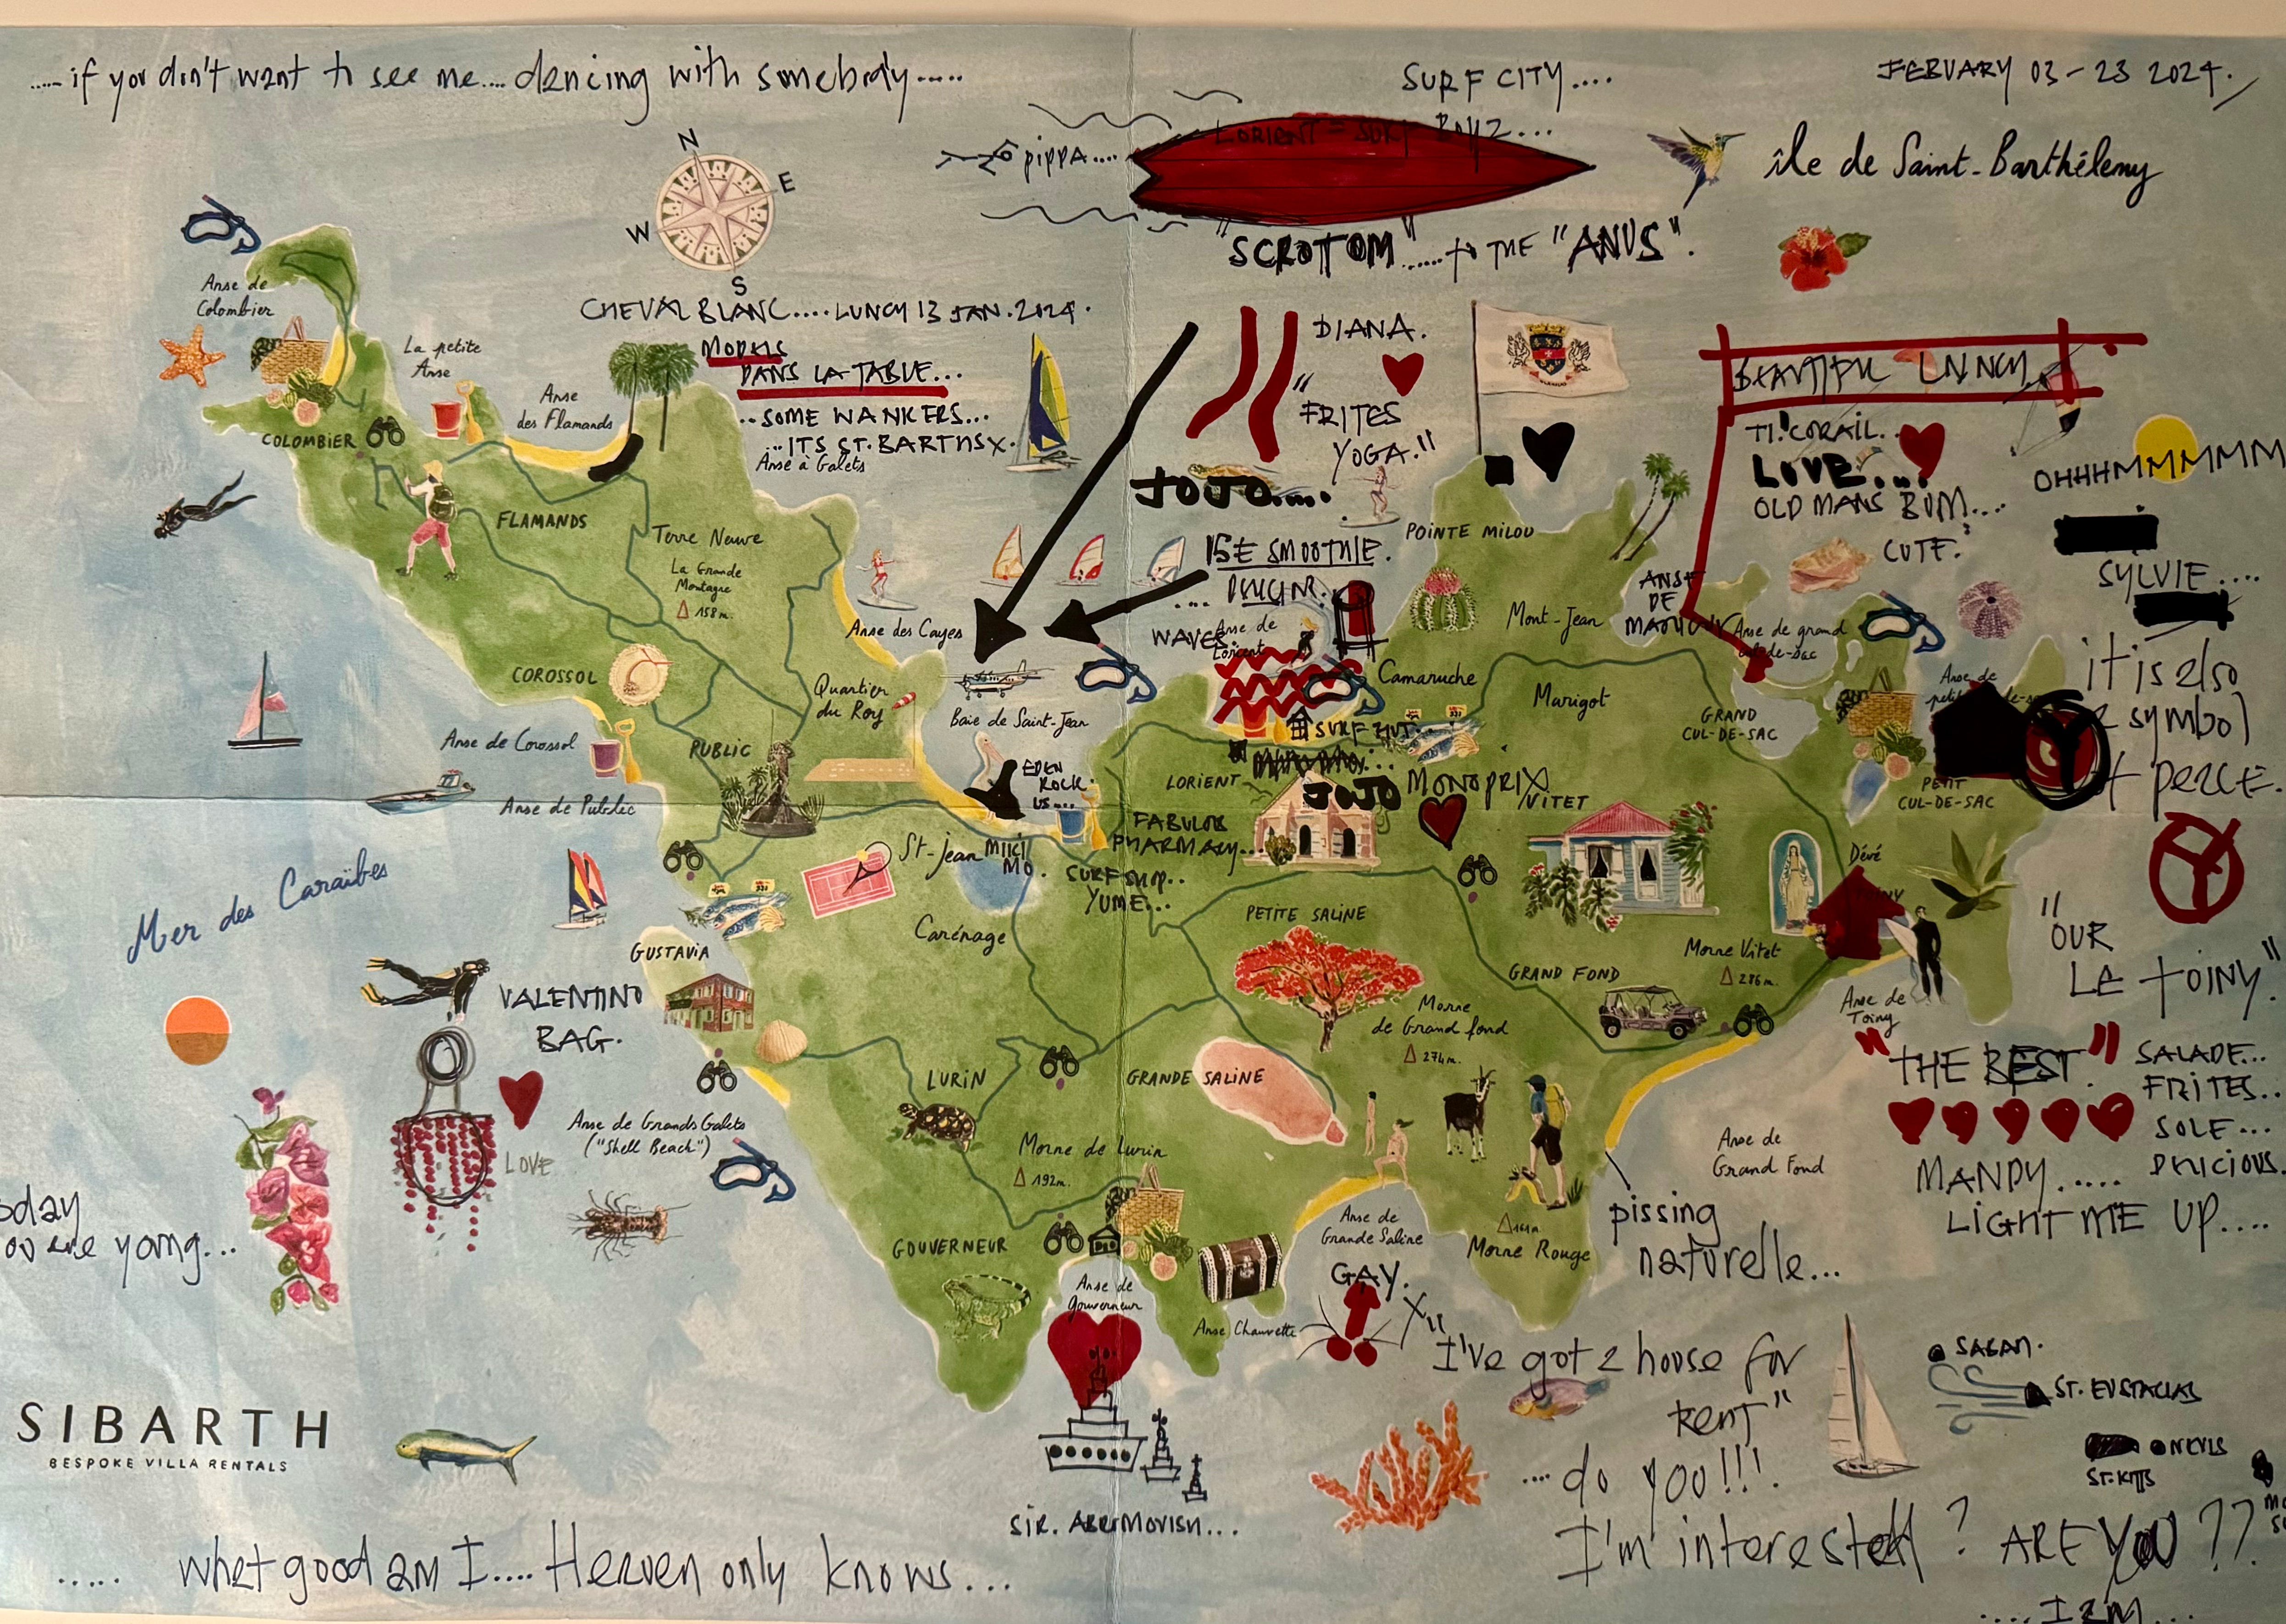 ..... if you don't want to see me.... dancing with somebody.....
SURF CITY....
FEBUARY 03-23 2024.
LORIENT = SURF BOYZ...
pippA....
île de Saint-Barthélemy
"SCROTOM"...... to THE "ANUS".
N
E
W
S
Anse de
Colombier
CHEVAL BLANC.... LUNCH 13 JAN. 2024.
MODELS
DANS LA TABLE...
..SOME WANKERS...
...ITS ST. BARTHS X.
Anse à Galets
La petite
Anse
Anse
des Flamands
COLOMBIER
FLAMANDS
Terre Neuve
La Grande
Montagne
158 m.
DIANA.
"FRITES
YOGA."
JOJO.....
15€ SMOOTHIE.
WAVES
Anse de
Lorient
POINTE MILOU
Mont-Jean
BEAUTIFUL LUNCH
TI! CORAIL..
LOVE...
OLD MANS BUM...
CUTE.
OHHHMMMMMM
SYLVIE....
ANSE
DE
Anse de grand
cul-de-sac
it is also
a symbol
of peace.
Anse des Cayes
COROSSOL
Quartier
du Roy
Baie de Saint-Jean
Camaruche
Marigot
GRAND
CUL-DE-SAC
Anse de
PETIT
CUL-DE-SAC
Anse de Corossol
PUBLIC
Anse de Public
EDEN
ROCK
US....
SURF HUT...
LORIENT
JOJO
MONOPRIX
VITET
FABULOUS
PHARMACY...
St-Jean
MIKI
MO.
SURF SHOP..
YUME...
Dévé
Mer des Caraïbes
Carénage
PETITE SALINE
GUSTAVIA
Morne Vitet
286 m.
GRAND FOND
Anse de
Toiny
"OUR
LE TOINY"
VALENTINO
BAG.
Morne
de Grand fond
274 m.
"THE BEST."
SALADE...
FRITES..
SOLE...
DELICIOUS.
LURIN
GRANDE SALINE
LOVE
Anse de Grands Galets
("Shell Beach")
Morne de Lurin
192 m.
Anse de
Grand Fond
MANDY.....
LIGHT ME UP....
pissing
naturelle...
GOUVERNEUR
Anse de
Grande Saline
Morne Rouge
Anse de
Gouverneur
GAY.
Anse Chauvette
young...
"I've got a house for
rent"
....do you!!!.
I'm interested? ARE YOU??
.....I am...
SABAN.
ST. EUSTACIAS
NEVIS
ST. KITTS
SIBARTH
BESPOKE VILLA RENTALS
SIR. ABRIMOVISH...
..... what good am I.... Heaven only knows...